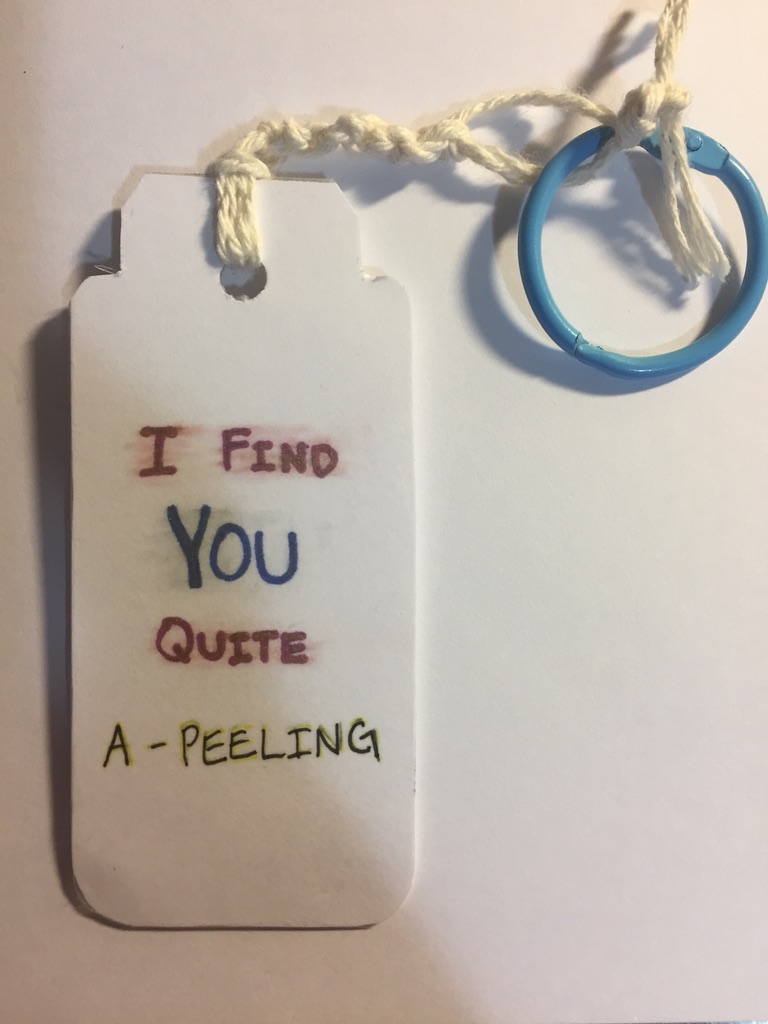 I FIND
YOU
QUITE
A - PEELING